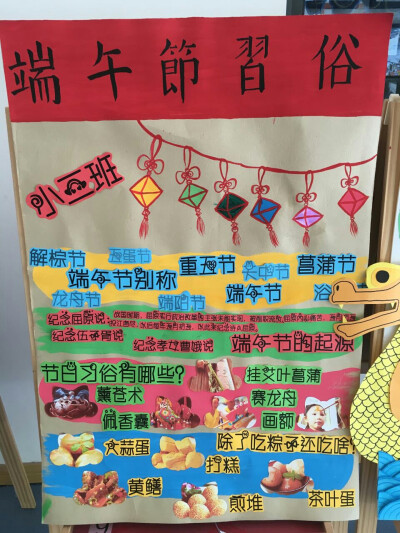 端午節習俗
小二班
解粽节 浴蛋节 重五节 天中节 菖蒲节
端午节别称
龙舟节 端阳节 端午节 浴
纪念屈原说:
纪念伍子胥说 纪念孝女曹娥说 端午节的起源
节日习俗有哪些? 挂艾叶菖蒲
薰苍术 赛龙舟
佩香囊 画额
食蒜蛋 除了吃粽子还吃啥?
打糕
黄鳝 煎堆 茶叶蛋